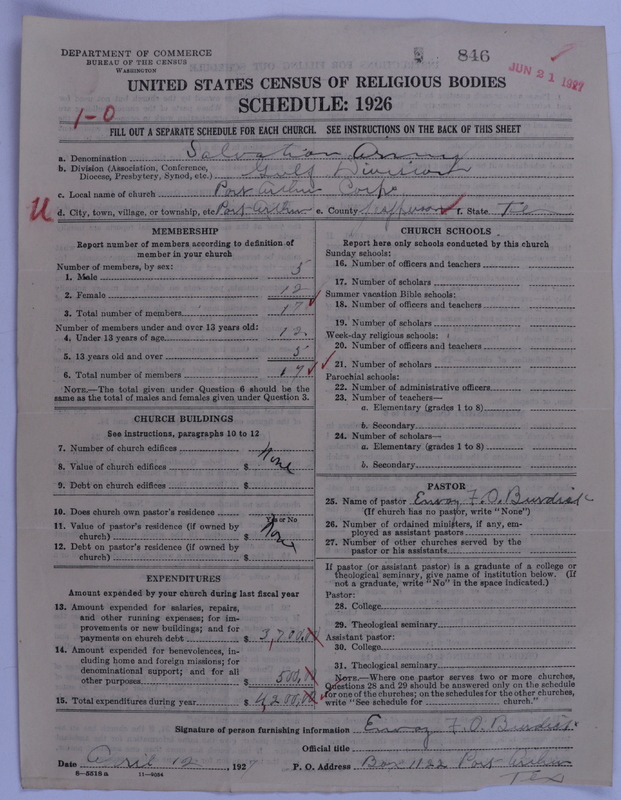 DEPARTMENT OF COMMERCE
BUREAU OF THE CENSUS
WASHINGTON
846
JUN 21 1927
UNITED STATES CENSUS OF RELIGIOUS BODIES
SCHEDULE: 1926
1-0
FILL OUT A SEPARATE SCHEDULE FOR EACH CHURCH. SEE INSTRUCTIONS ON THE BACK OF THIS SHEET
a. Denomination Salvation Army
b. Division (Association, Conference, Diocese, Presbytery, Synod, etc.) Gulf Division
c. Local name of church Port Arthur Corps
U
d. City, town, village, or township, etc. Port Arthur e. County Jefferson f. State Tex
MEMBERSHIP
Report number of members according to definition of
member in your church
Number of members, by sex:
1. Male 5
2. Female 12
3. Total number of members 17
Number of members under and over 13 years old:
4. Under 13 years of age 12
5. 13 years old and over 5
6. Total number of members 17
NOTE.—The total given under Question 6 should be
same as the total of males and females given under Question 3.
CHURCH BUILDINGS
See instructions, paragraphs 10 to 12
7. Number of church edifices
8. Value of church edifices $ None
9. Debt on church edifices $
10. Does church own pastor's residence
Yes or No
11. Value of pastor's residence (if owned by
church) $ None
12. Debt on pastor's residence (if owned by
church) $
EXPENDITURES
Amount expended by your church during last fiscal year
13. Amount expended for salaries, repairs,
and other running expenses; for im-
provements or new buildings; and for
payments on church debt $ 3,700.00
14. Amount expended for benevolences, in-
cluding home and foreign missions; for
denominational support; and for all
other purposes $ 500.00
15. Total expenditures during year $ 4,200.00
CHURCH SCHOOLS
Report here only schools conducted by this church
Sunday schools:
16. Number of officers and teachers
17. Number of scholars
Summer vacation Bible schools:
18. Number of officers and teachers
19. Number of scholars
Week-day religious schools:
20. Number of officers and teachers
21. Number of scholars
Parochial schools:
22. Number of administrative officers
23. Number of teachers—
a. Elementary (grades 1 to 8)
b. Secondary
24. Number of scholars—
a. Elementary (grades 1 to 8)
b. Secondary
PASTOR
25. Name of pastor Envoy F. O. Burdick
(If church has no pastor, write "None")
26. Number of ordained ministers, if any, em-
ployed as assistant pastors
27. Number of other churches served by the
pastor or his assistants
If pastor (or assistant pastor) is a graduate of a college or
theological seminary, give name of institution below. (If
not a graduate, write "No" in the space indicated.)
Pastor:
28. College
29. Theological seminary
Assistant pastor:
30. College
31. Theological seminary
NOTE.—Where one pastor serves two or more churches,
Questions 28 and 29 should be answered only on the schedule
for one of the churches; on the schedules for the other churches,
write "See schedule for church."
Signature of person furnishing information Envoy F. O. Burdick
Official title
Date April 12, 1927 P. O. Address Box 1122 Port Arthur
Tex
8-5318a 11-9084